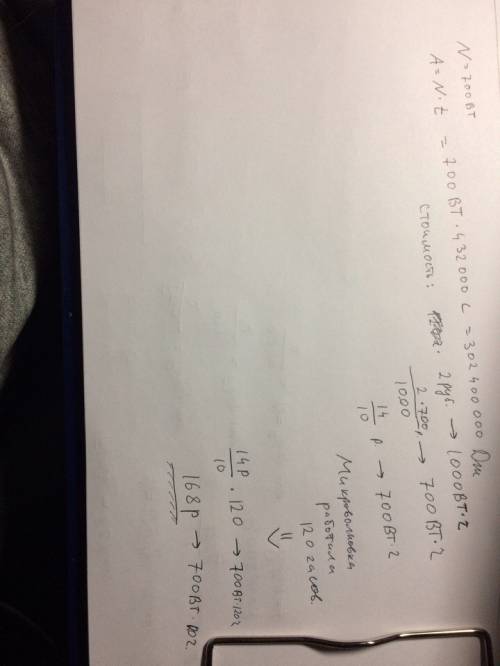 N = 700 Вт
A = N·t = 700 Вт · 432000 с = 302 400 000 Дж
стоимость: 2 руб. → 1000 Вт·ч
2·700/1000 → 700 Вт·ч
14/10 р → 700 Вт·ч
Микроволновка
работала
120 часов.
⇓
14р/10 · 120 → 700 Вт·120ч
168 р → 700 Вт·120ч.